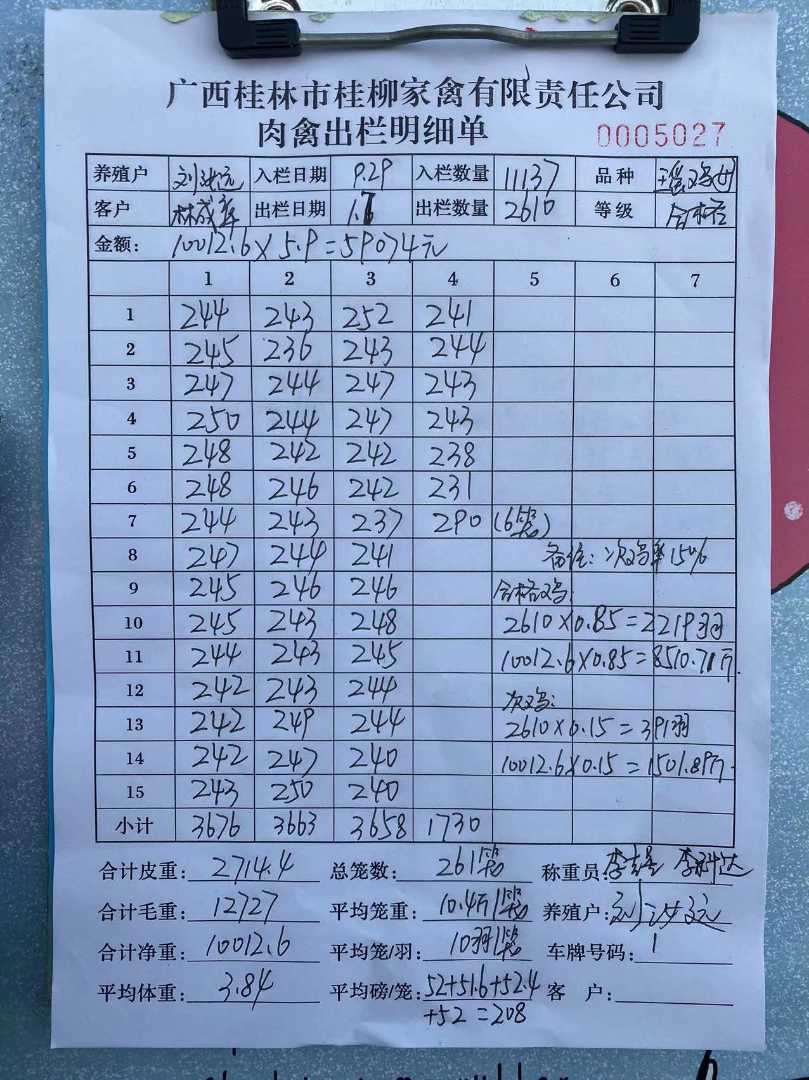 广西桂林市桂柳家禽有限责任公司
肉禽出栏明细单 0005027
养殖户 刘汝远 入栏日期 9.29 入栏数量 11137 品种 瑶鸡女
客户 林成 出栏日期 1.7 出栏数量 2610 等级 合格
金额: 10012.6×5.9=59074元
1 2 3 4 5 6 7
1 244 243 252 241
2 245 236 243 244
3 247 244 247 243
4 250 244 247 243
5 248 242 242 238
6 248 246 242 231
7 244 243 237 290 (6笼)
8 247 244 241 备注: 次鸡率15%
9 245 246 246 合格鸡:
10 245 243 248 2610×0.85=2219羽
11 244 243 245 10012.6×0.85=8510.71斤
12 242 243 244 次鸡:
13 242 249 244 2610×0.15=391羽
14 242 247 240 10012.6×0.15=1501.89斤
15 243 250 240
小计 3676 3663 3658 1730
合计皮重: 2714.4 总笼数: 261笼 称重员: 李 李科达
合计毛重: 12727 平均笼重: 10.4斤/笼 养殖户: 刘汝远
合计净重: 10012.6 平均笼/羽: 10羽/笼 车牌号码: 1
平均体重: 3.84 平均磅/笼: 52+51.6+52.4 客 户:
+52=208